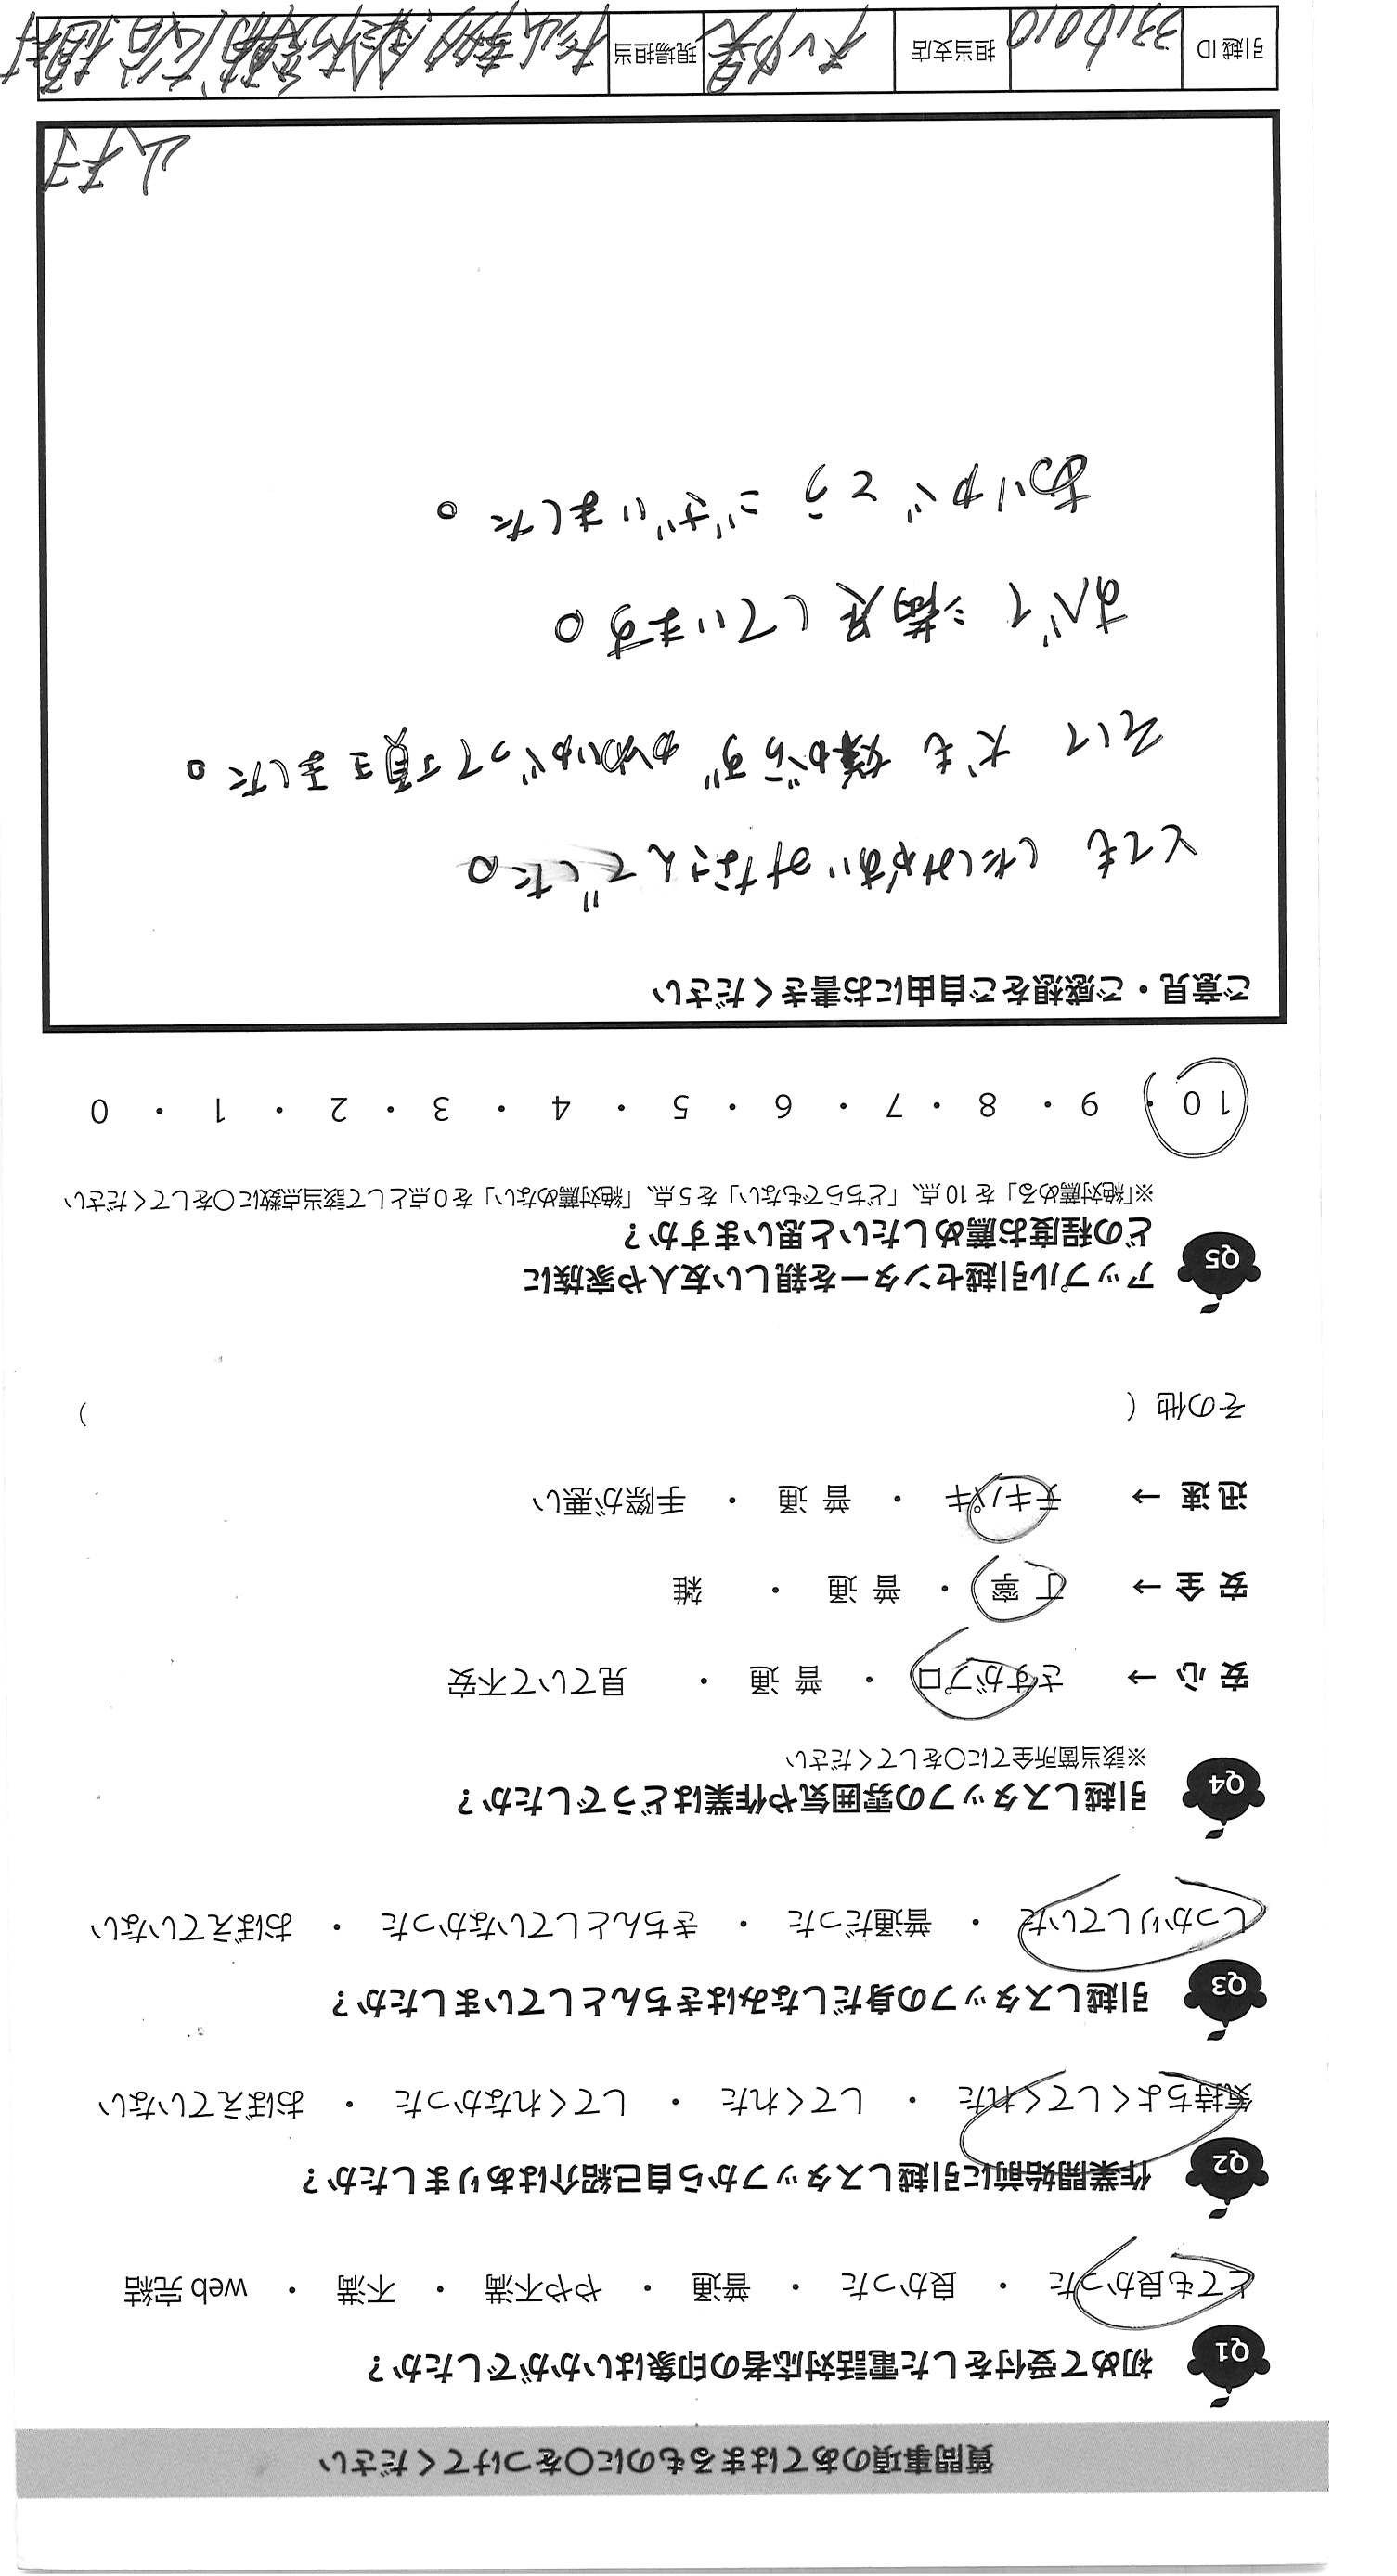 質問事項のあてはまるものに○をつけてください
Q1 初めて受付をした電話対応者の印象はいかがでしたか？
とても良かった ・ 良かった ・ 普通 ・ やや不満 ・ 不満 ・ web 完結
Q2 作業開始前に引越しスタッフから自己紹介はありましたか？
気持ちよくしてくれた ・ してくれた ・ してくれなかった ・ おぼえていない
Q3 引越しスタッフの身だしなみはきちんとしていましたか？
しっかりしていた ・ 普通だった ・ きちんとしていなかった ・ おぼえていない
Q4 引越しスタッフの雰囲気や作業はどうでしたか？
※該当箇所全てに○をしてください
安心 → さすがプロ ・ 普通 ・ 見ていて不安
安全 → 丁寧 ・ 普通 ・ 雑
迅速 → テキパキ ・ 普通 ・ 手際が悪い
その他（ ）
Q5 アップル引越センターを親しい友人や家族に
どの程度お薦めしたいと思いますか？
※「絶対薦める」を 10 点、「どちらでもない」を 5 点、「絶対薦めない」を 0 点として該当点数に○をしてください
10 ・ 9 ・ 8 ・ 7 ・ 6 ・ 5 ・ 4 ・ 3 ・ 2 ・ 1 ・ 0
ご意見・ご感想をご自由にお書きください
とても したしみやすい みなさんでした。
そして 犬も 嫌がらず かわいがって頂きました。
すべて 満足しています。
ありがとう ございました。
引越 ID 3310010 担当支店 現場担当